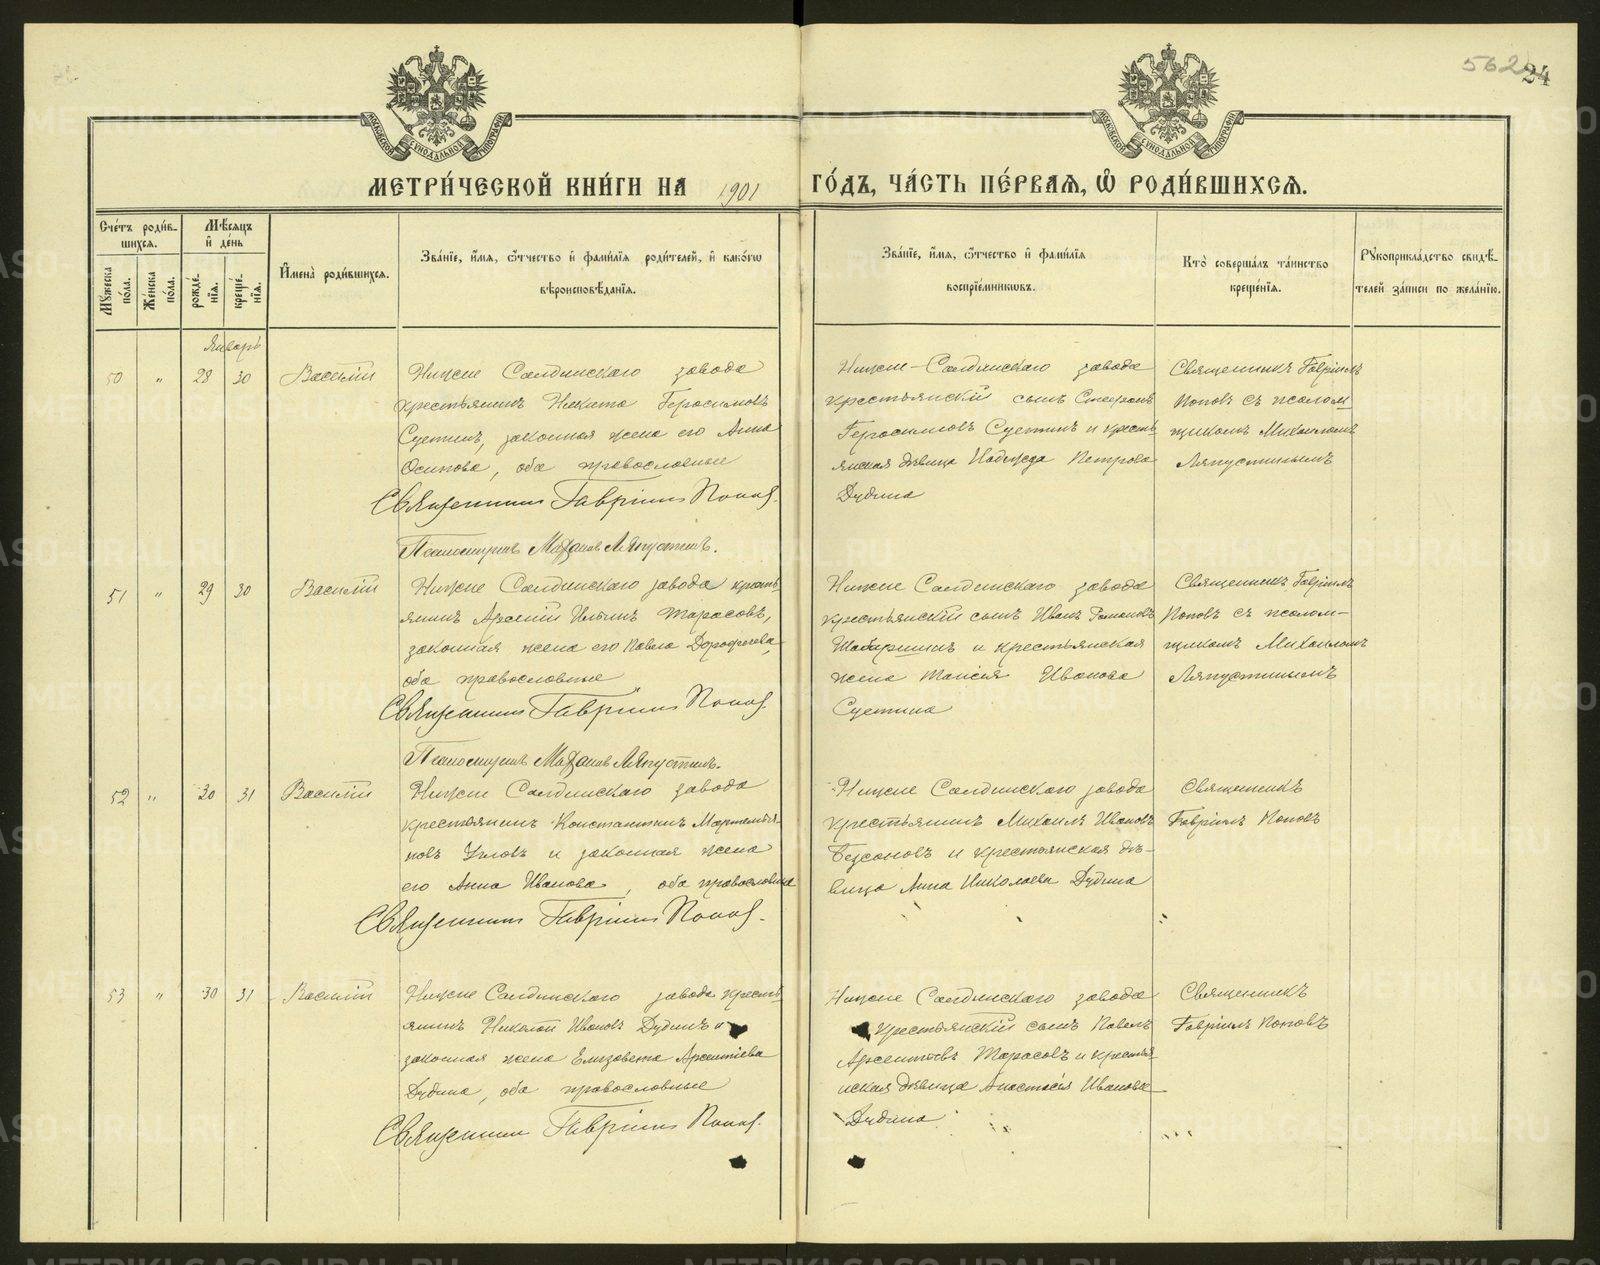 562 24
МОСКОВСКОЙ СѴНОДАЛЬНОЙ ТИПОГРАФІИ
МОСКОВСКОЙ СѴНОДАЛЬНОЙ ТИПОГРАФІИ
МЕТРИ́ЧЕСКОЙ КНИ́ГИ НА 1901 ГО́ДЪ, ЧА́СТЬ ПЕ́РВАЯ, Ѡ РОДИ́ВШИХСЯ.
Сче́тъ роди́в-
шихся.
Мѣ́сяцъ
и де́нь
Му́жеска
по́ла.
Же́нска
по́ла.
рожде́-
нія.
креще́-
нія.
И́мена̀ роди́вшихся.
Зва́нїе, и́мя, ѻ́тчество и фами́лїя роди́телей, и како́гѡ
вѣроисповѣ́данїя.
Зва́нїе, и́мя, ѻ́тчество и фами́лїя
воспрїе́мникѡвъ.
Кто̀ соверша́лъ та́инство
креще́нїя.
Рꙋкоприкла́дство свидѣ́-
телей за́писи по жела́нїю.
Январь
50 " 28 30 Василій
Нижне Салдинскаго завода
крестьянинъ Никита Герасимовъ
Суетинъ, законная жена его Анна
Осипова, оба православные
Священникъ Гавріилъ Поповъ.
Псаломщикъ Михаилъ Ляпустинъ.
Нижне-Салдинскаго завода
крестьянскій сынъ Стефанъ
Герасимовъ Суетинъ и кресть-
янская дѣвица Надежда Петрова
Дудина
Священникъ Гавріилъ
Поповъ съ псалом-
щикомъ Михаиломъ
Ляпустинымъ
51 " 29 30 Василій
Нижне Салдинскаго завода кресть-
янинъ Арсеній Ильинъ Тарасовъ,
законная жена его Павла Дорофеева,
оба православные
Священникъ Гавріилъ Поповъ
Псаломщикъ Михаилъ Ляпустинъ.
Нижне Салдинскаго завода
крестьянскій сынъ Иванъ Романовъ
Шабаршинъ и крестьянская
жена Таисія Иванова
Суетина
Священникъ Гавріилъ
Поповъ съ псалом-
щикомъ Михаиломъ
Ляпустинымъ
52 " 30 31 Василій
Нижне Салдинскаго завода
крестьянинъ Константинъ Мартемья-
новъ Угловъ и законная жена
его Анна Иванова, оба православные
Священникъ Гавріилъ Поповъ.
Нижне Салдинскаго завода
крестьянинъ Михаилъ Ивановъ
Безсоновъ и крестьянская дѣ-
вица Анна Николаева Дудина
Священникъ
Гавріилъ Поповъ
53 " 30 31 Василій
Нижне Салдинскаго завода кресть-
янинъ Николай Ивановъ Дудинъ и
законная жена Елизавета Арсентіева
Дудина, оба православные
Священникъ Гавріилъ Поповъ.
Нижне Салдинскаго завода
крестьянскій сынъ Павелъ
Арсентіевъ Тарасовъ и крестья-
нская дѣвица Анастасія Иванова
Дудина
Священникъ
Гавріилъ Поповъ